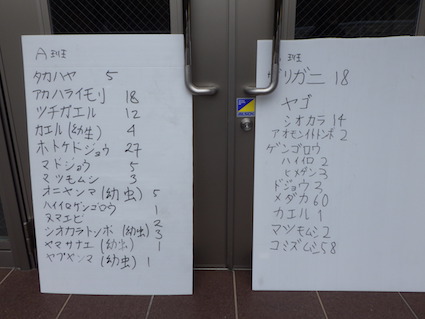 A 班
タカハヤ 5
アカハライモリ 18
ツチガエル 12
カエル(幼生) 4
ホトケドジョウ 27
マドジョウ 5
マツモムシ 3
オニヤンマ(幼虫) 5
ハイイロゲンゴロウ 1
ヌマエビ 2
シオカラトンボ(幼虫) 3
ヤマサナエ(幼虫) 1
ヤブヤンマ(幼虫) 1
班
ザリガニ 18
ヤゴ
シオカラ 14
アオモンイトトンボ 2
ゲンゴロウ
ハイイロ 2
ヒメゲン 3
ドジョウ 3
メダカ 60
カエル 1
マツモムシ 2
コミズムシ 58